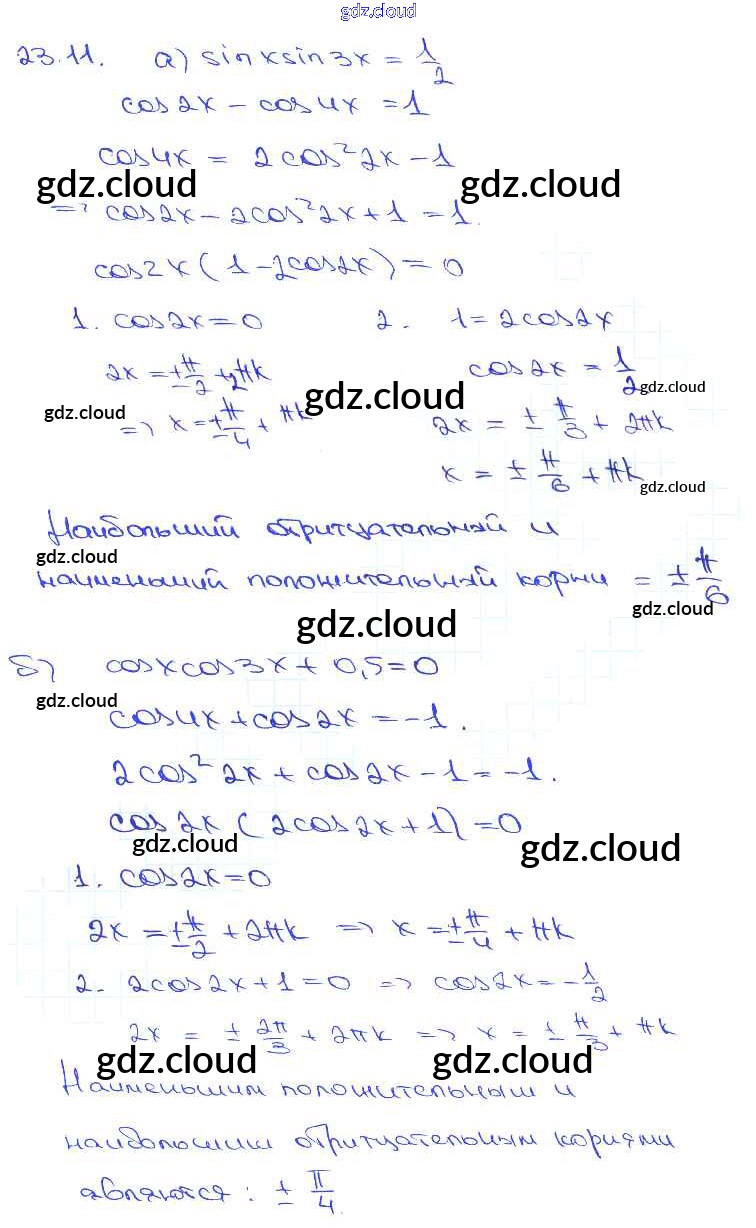 gdz.cloud
23.11. а) sinxsin3x = 1/2
cos2x - cos4x = 1
cos4x = 2cos²2x - 1
gdz.cloud gdz.cloud
=> cos2x - 2cos²2x + 1 = 1.
cos2x(1 - 2cos2x) = 0
1. cos2x = 0 2. 1 = 2cos2x
2x = ±π/2 + 2πk cos2x = 1/2
gdz.cloud
gdz.cloud gdz.cloud
=> x = ±π/4 + πk 2x = ± π/3 + 2πk
x = ± π/6 + πk
gdz.cloud
Наибольший отрицательный и
gdz.cloud
наименьший положительный корни = ± π/6
gdz.cloud gdz.cloud
б) cosxcos3x + 0,5 = 0
gdz.cloud
cos4x + cos2x = -1.
2cos²2x + cos2x - 1 = -1.
cos2x (2cos2x + 1) = 0
gdz.cloud gdz.cloud
1. cos2x = 0
2x = ±π/2 + 2πk => x = ±π/4 + πk
2. 2cos2x + 1 = 0 => cos2x = -1/2
2x = ± 2π/3 + 2πk => x = ± π/3 + πk
gdz.cloud gdz.cloud
Наименьшим положительным и
наибольшим отрицательным корнями
являются: ± π/4.